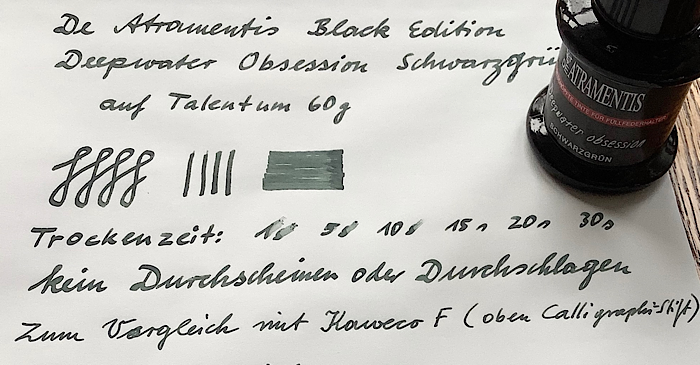 De Atramentis Black Edition
Deepwater Obsession Schwarzgrü
auf Talentum 60g
Trockenzeit: 1s 5s 10s 15s 20s 30s
kein Durchscheinen oder Durchschlagen
Zum Vergleich mit Kaweco F (oben Calligraphi-Stift)
DE ATRAMENTIS
TINTE FÜR FÜLLFEDERHALTER
Deepwater obsession
SCHWARZGRÜN